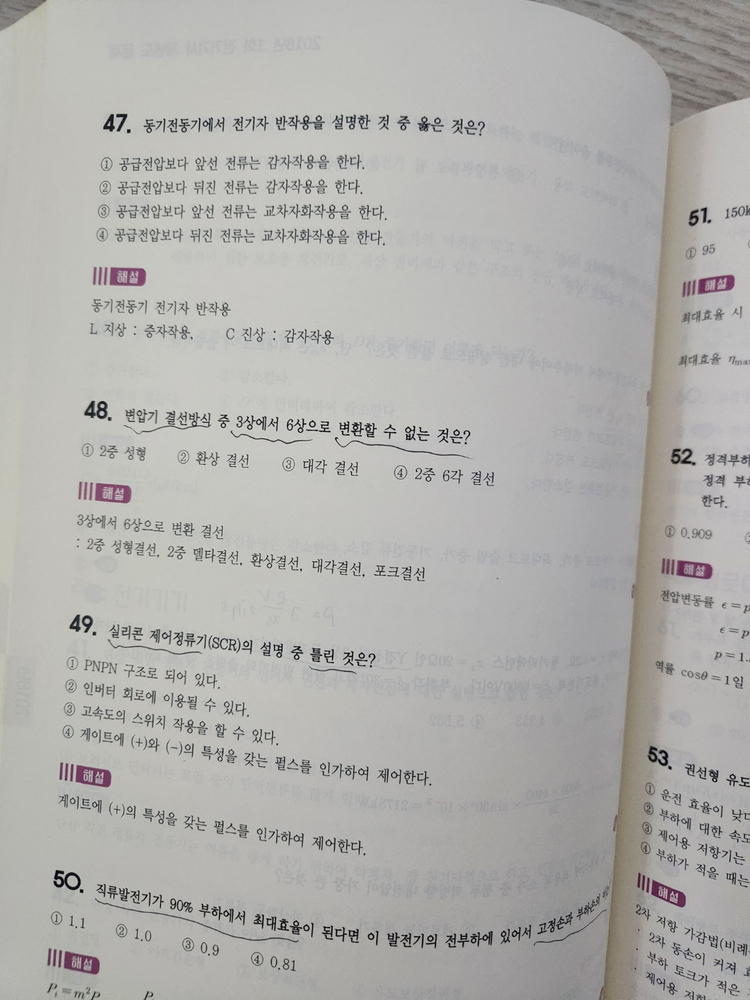 47. 동기전동기에서 전기자 반작용을 설명한 것 중 옳은 것은?
① 공급전압보다 앞선 전류는 감자작용을 한다.
② 공급전압보다 뒤진 전류는 감자작용을 한다.
③ 공급전압보다 앞선 전류는 교차자화작용을 한다.
④ 공급전압보다 뒤진 전류는 교차자화작용을 한다.
해설
동기전동기 전기자 반작용
L 지상 : 증자작용, C 진상 : 감자작용
48. 변압기 결선방식 중 3상에서 6상으로 변환할 수 없는 것은?
① 2중 성형 ② 환상 결선 ③ 대각 결선 ④ 2중 6각 결선
해설
3상에서 6상으로 변환 결선
: 2중 성형결선, 2중 델타결선, 환상결선, 대각결선, 포크결선
49. 실리콘 제어정류기(SCR)의 설명 중 틀린 것은?
① PNPN 구조로 되어 있다.
② 인버터 회로에 이용될 수 있다.
③ 고속도의 스위치 작용을 할 수 있다.
④ 게이트에 (+)와 (-)의 특성을 갖는 펄스를 인가하여 제어한다.
해설
게이트에 (+)의 특성을 갖는 펄스를 인가하여 제어한다.
50. 직류발전기가 90% 부하에서 최대효율이 된다면 이 발전기의 전부하에 있어서 고정손과 부하손의
① 1.1 ② 1.0 ③ 0.9 ④ 0.81
해설
51. 150k
① 95
해설
최대효율 시
최대효율 η
52. 정격부하
정격 부하
한다.
① 0.909
해설
전압변동률 ε = p
ε = p
p = 1.
역률 cosθ = 1일
53. 권선형 유도
① 운전 효율이 낮다
② 부하에 대한 속도
③ 제어용 저항기는
④ 부하가 적을 때는
해설
2차 저항 가감법(비례
· 2차 동손이 커져 효
· 부하 토크가 적은
· 제어용 저항